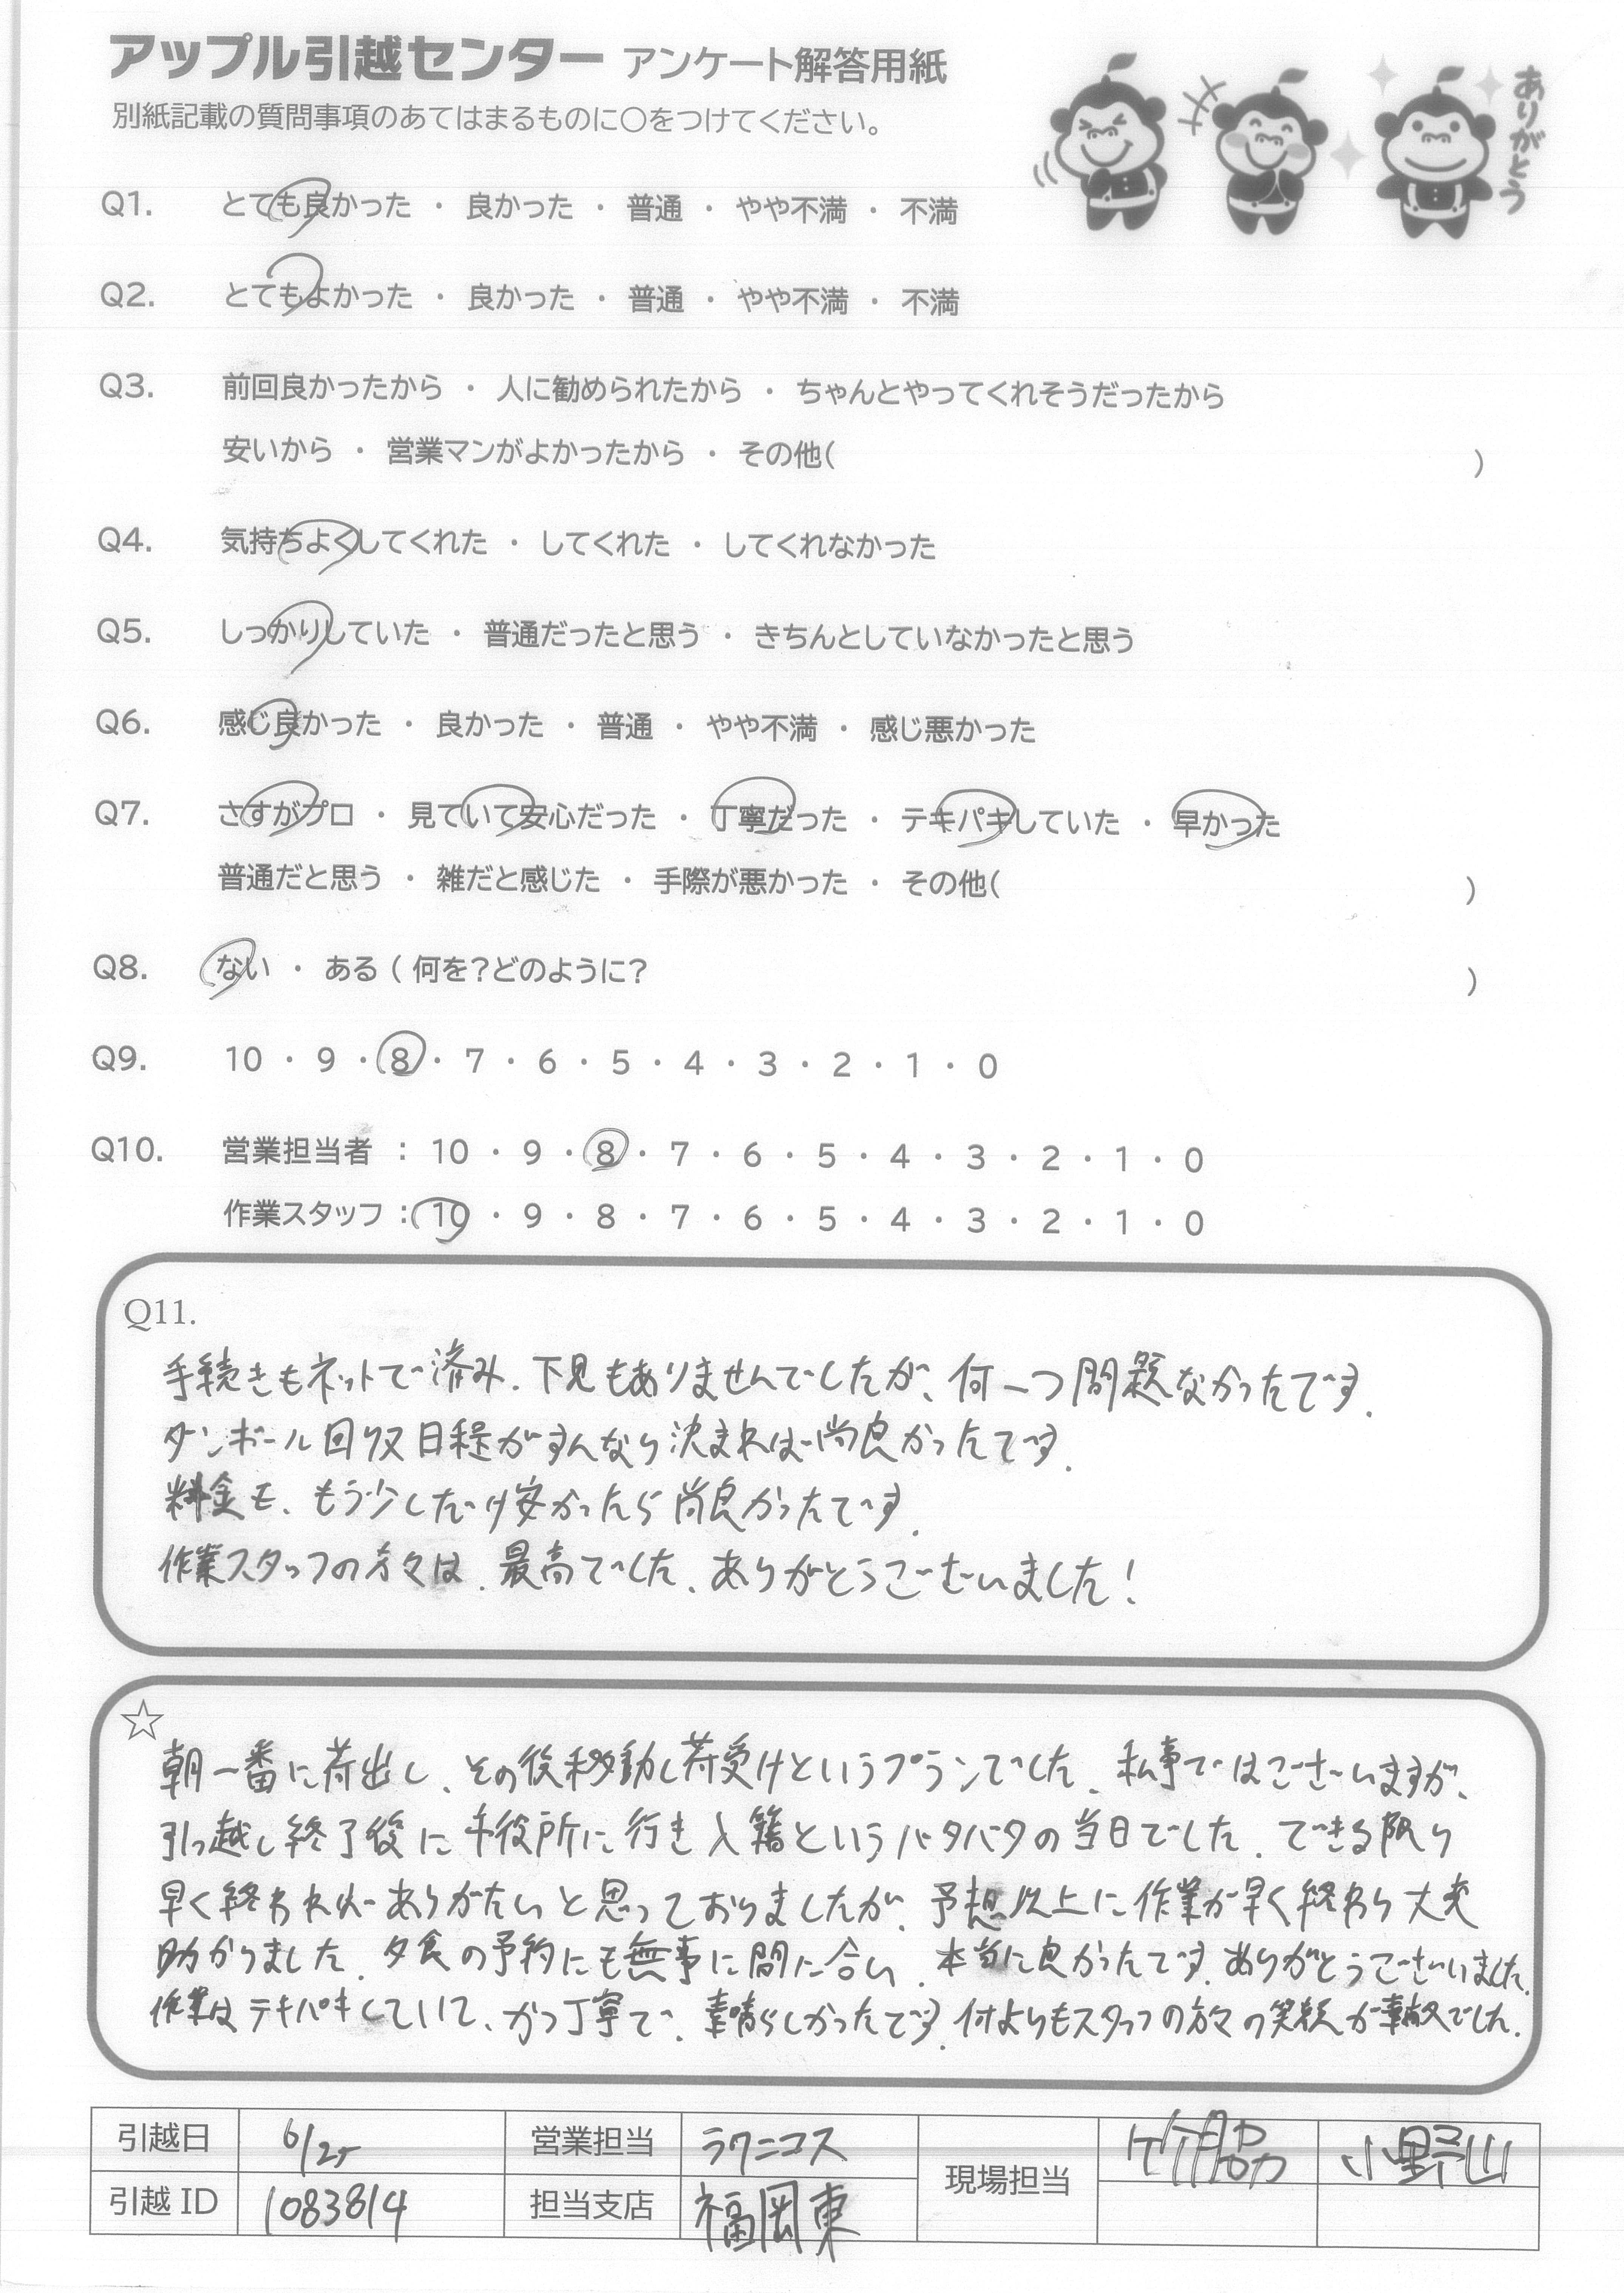 アップル引越センター アンケート解答用紙
別紙記載の質問事項のあてはまるものに○をつけてください。
ありがとう
Q1. とても良かった ・ 良かった ・ 普通 ・ やや不満 ・ 不満
Q2. とてもよかった ・ 良かった ・ 普通 ・ やや不満 ・ 不満
Q3. 前回良かったから ・ 人に勧められたから ・ ちゃんとやってくれそうだったから
安いから ・ 営業マンがよかったから ・ その他( )
Q4. 気持ちよくしてくれた ・ してくれた ・ してくれなかった
Q5. しっかりしていた ・ 普通だったと思う ・ きちんとしていなかったと思う
Q6. 感じ良かった ・ 良かった ・ 普通 ・ やや不満 ・ 感じ悪かった
Q7. さすがプロ ・ 見ていて安心だった ・ 丁寧だった ・ テキパキしていた ・ 早かった
普通だと思う ・ 雑だと感じた ・ 手際が悪かった ・ その他( )
Q8. ない ・ ある ( 何を?どのように? )
Q9. 10 ・ 9 ・ 8 ・ 7 ・ 6 ・ 5 ・ 4 ・ 3 ・ 2 ・ 1 ・ 0
Q10. 営業担当者 : 10 ・ 9 ・ 8 ・ 7 ・ 6 ・ 5 ・ 4 ・ 3 ・ 2 ・ 1 ・ 0
作業スタッフ : 10 ・ 9 ・ 8 ・ 7 ・ 6 ・ 5 ・ 4 ・ 3 ・ 2 ・ 1 ・ 0
Q11.
手続きもネットで済み、下見もありませんでしたが、何一つ問題なかったです。
ダンボール回収日程がすんなり決まれば尚良かったです。
料金も、もう少しだけ安かったら尚良かったです。
作業スタッフの方々は、最高でした、ありがとうございました!
☆
朝一番に荷出し、その後移動し荷受けというプランでした、私事ではございますが、
引っ越し終了後に市役所に行き入籍というバタバタの当日でした。できる限り
早く終われればありがたいと思っておりましたが、予想以上に作業が早く終わり大変
助かりました。夕食の予約にも無事に間に合い、本当に良かったです。ありがとうございました。
作業はテキパキしていて、かつ丁寧で、素晴らしかったです。何よりもスタッフの方々の笑顔が素敵でした。
引越日 6/25 営業担当 ラクニコス 現場担当 竹脇 小野山
引越 ID 1083814 担当支店 福岡東